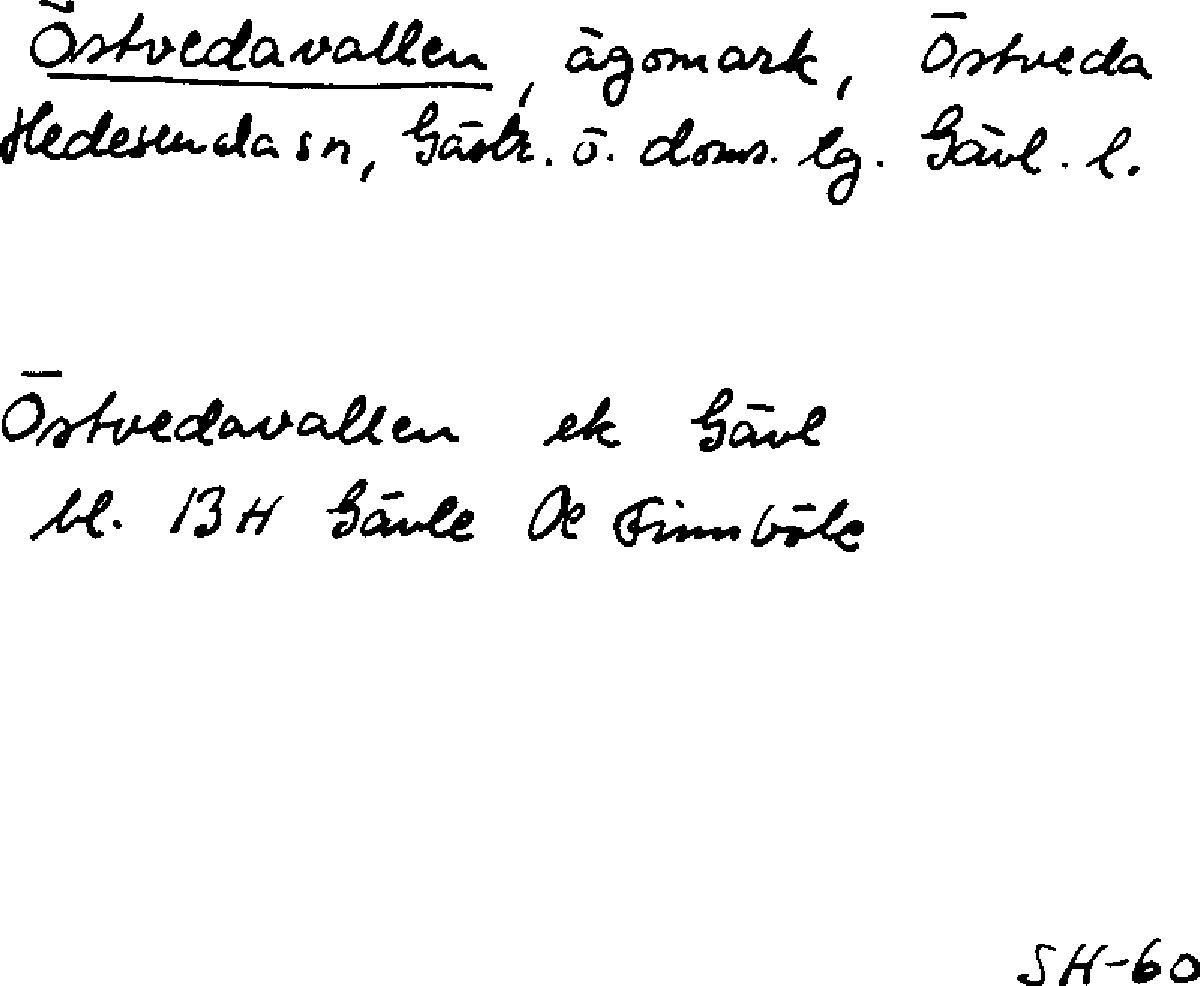 Östvedavallen, ägomark, Östveda
Hedesunda sn, Gästr. ö. doms. lg. Gävl. l.
Östvedavallen ek Gävl
bl. 13H Gävle
SH-60